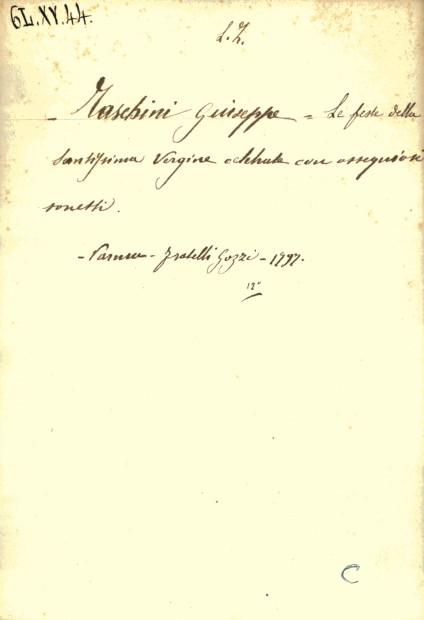 GL.XV.44.
L. Z.
- Maschini Giuseppe = Le feste della
Santissima Vergine celebrate con ossequiosi
sonetti.
- Parma - Fratelli Gozzi - 1797.
12°
C